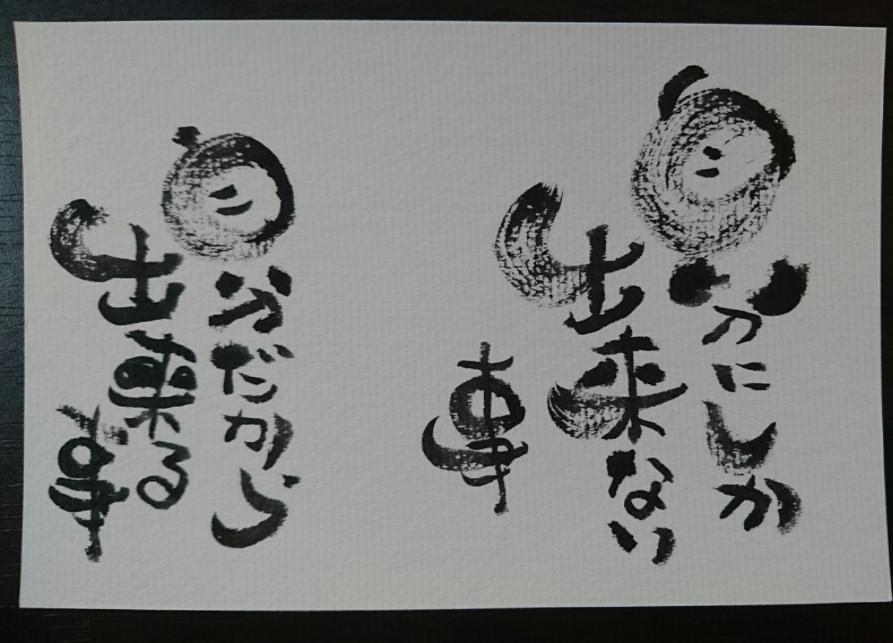 自分にしか
出来ない
事
自分だから
出来る
事